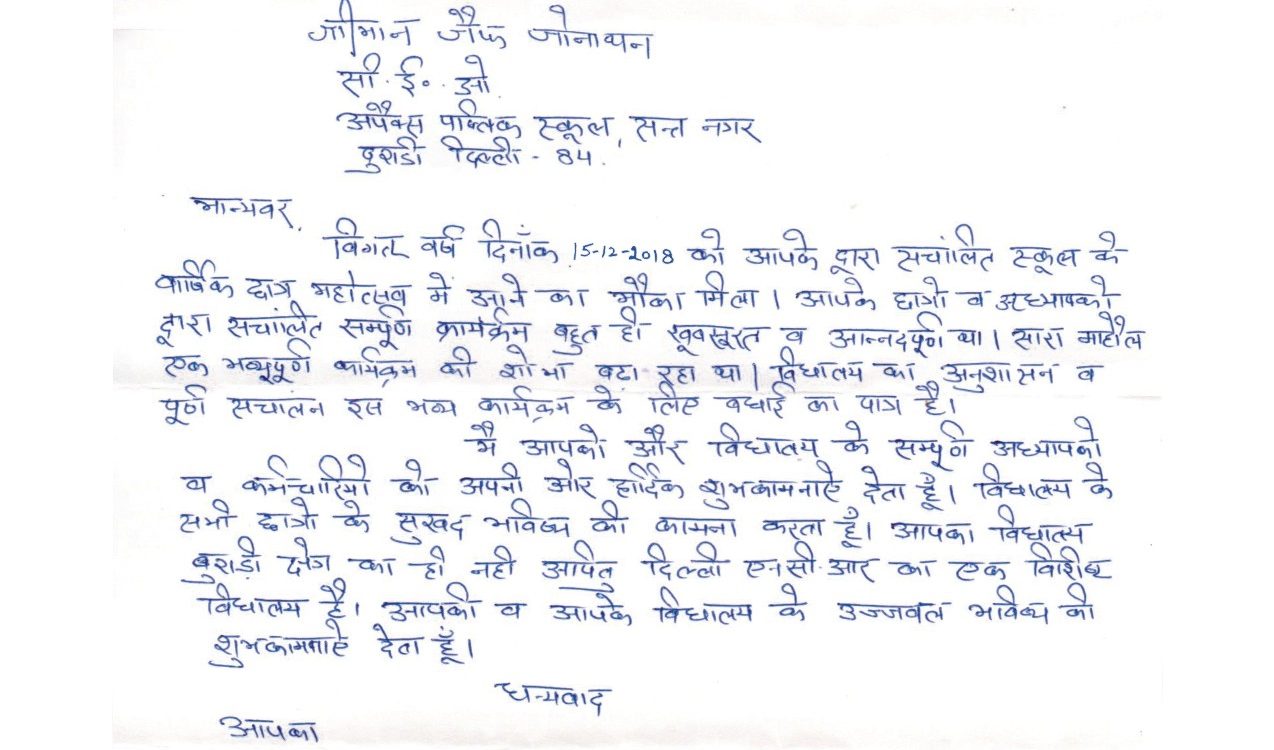 श्रीमान जैफ जोनाथन
सी. ई. ओ.
अपैक्स पब्लिक स्कूल, सन्त नगर
बुराडी दिल्ली - 84.
मान्यवर,
विगत वर्ष दिनाँक 15-12-2018 को आपके द्वारा सचांलित स्कूल के
वार्षिक छात्र महोत्सव में आने का मौका मिला। आपके छात्रो व अध्यापको
द्वारा सचांलित सम्पूर्ण कार्यक्रम बहुत ही खूबसूरत व आन्नदपूर्ण था। सारा माहौल
एक भव्यपूर्ण कार्यक्रम की शोभा बढा रहा था। विधालय का अनुशासन व
पूर्ण सचांलन इस भव्य कार्यक्रम के लिए बधाई का पात्र है।
मै आपको और विधालय के सम्पूर्ण अध्यापको
व कर्मचारियो को अपनी ओर हार्दिक शुभकामनाऐ देता हूँ। विधालय के
सभी छात्रो के सुखद भविष्य की कामना करता हूँ। आपका विधालय
बुराडी क्षेत्र का ही नही अपितु दिल्ली एन.सी.आर का एक विशिष्ट
विधालय है। आपकी व आपके विधालय के उज्जवल भविष्य की
शुभकामनाऐ देता हूँ।
धन्यवाद
आपका